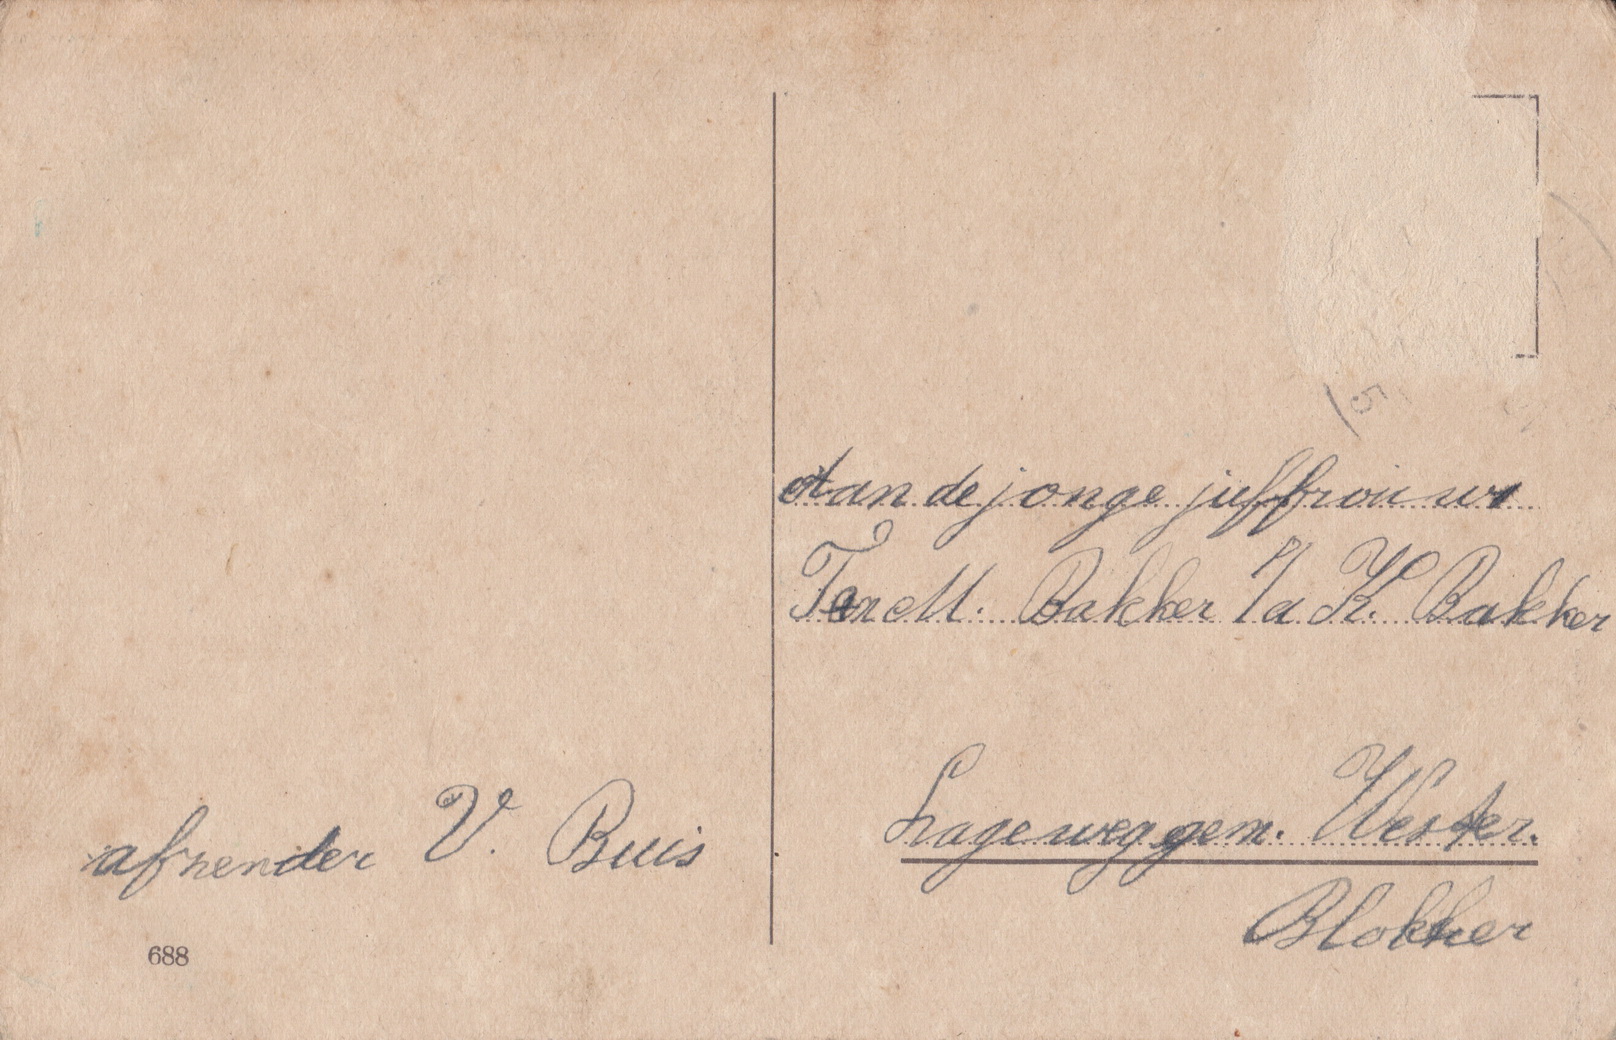 Aan de jonge juffrouw
T en M. Bakker p/a K. Bakker
Lageweg gem. Wester.
Blokker
afzender V. Buis
688
5